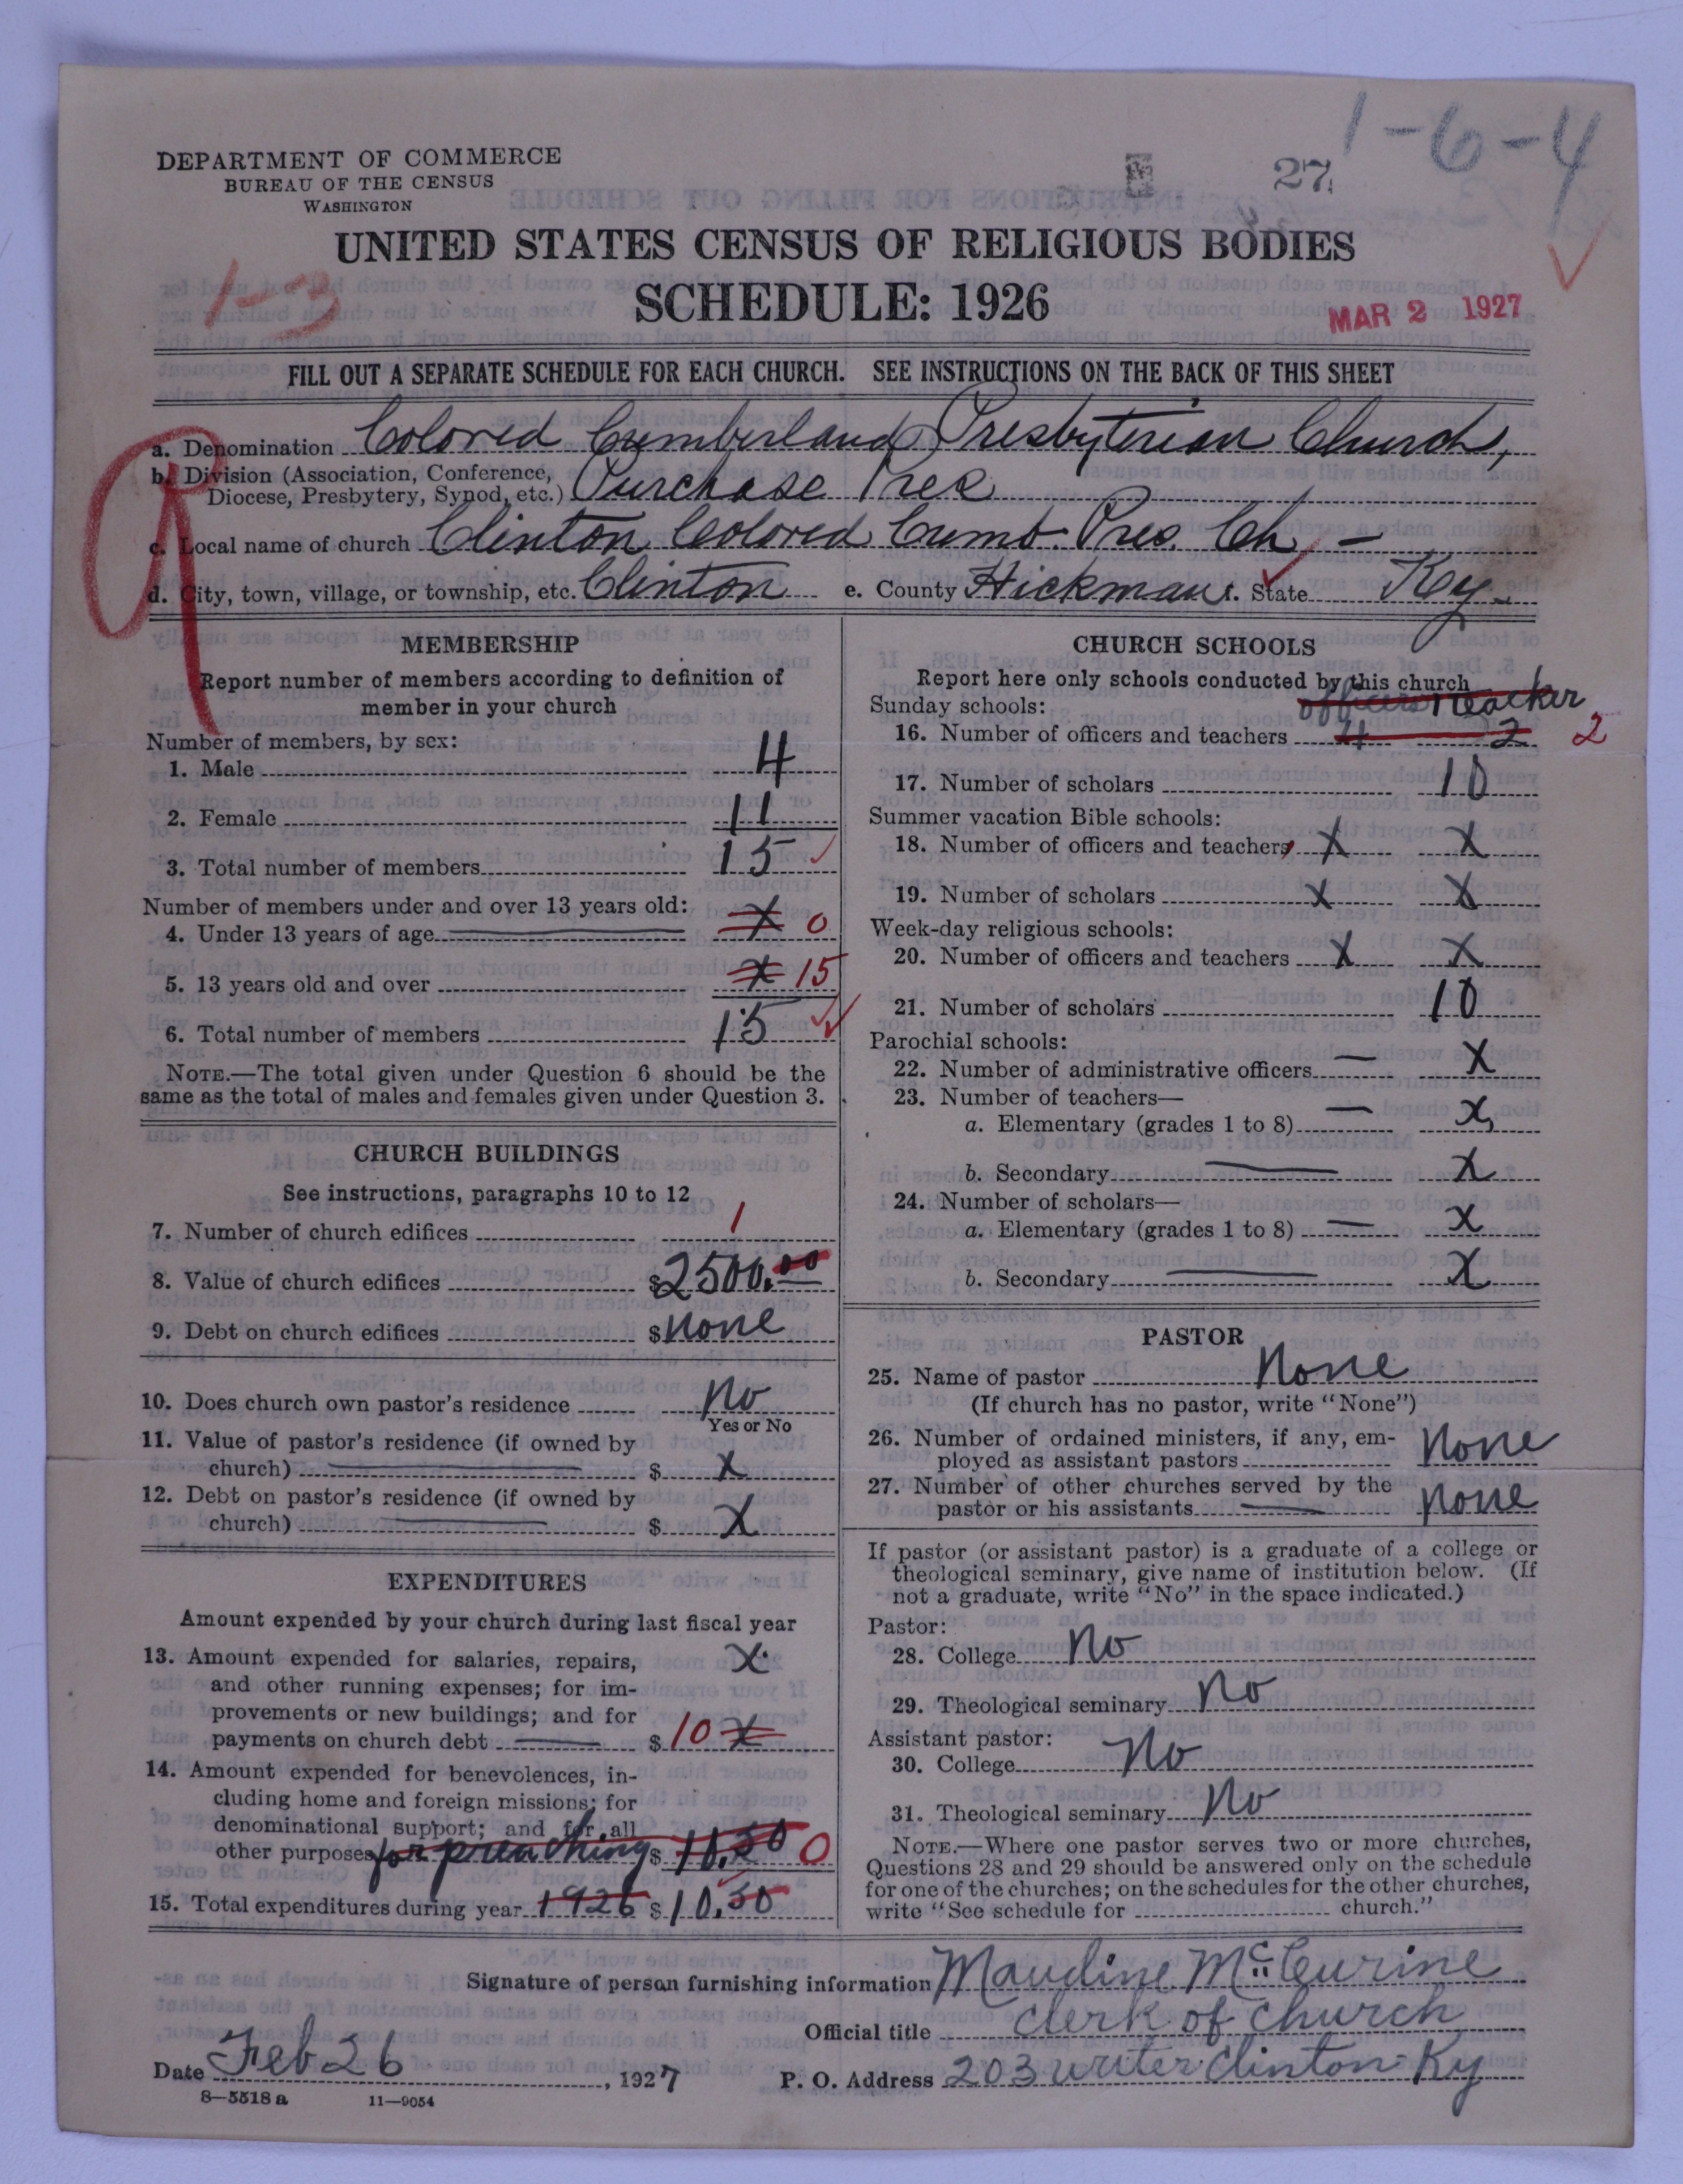 1-6-4
DEPARTMENT OF COMMERCE
BUREAU OF THE CENSUS
WASHINGTON
27
UNITED STATES CENSUS OF RELIGIOUS BODIES
1-3
SCHEDULE: 1926
MAR 2 1927
FILL OUT A SEPARATE SCHEDULE FOR EACH CHURCH. SEE INSTRUCTIONS ON THE BACK OF THIS SHEET
a. Denomination Colored Cumberland Presbyterian Church,
b. Division (Association, Conference,
Diocese, Presbytery, Synod, etc.) Purchase Pres
c. Local name of church Clinton Colored Cumb. Pres. Ch, -
d. City, town, village, or township, etc. Clinton e. County Hickman f. State Ky.
MEMBERSHIP
Report number of members according to definition of
member in your church
Number of members, by sex:
1. Male 4
2. Female 11
3. Total number of members 15
Number of members under and over 13 years old:
4. Under 13 years of age X 0
5. 13 years old and over X 15
6. Total number of members 15
NOTE.—The total given under Question 6 should be the
same as the total of males and females given under Question 3.
CHURCH BUILDINGS
See instructions, paragraphs 10 to 12
7. Number of church edifices 1
8. Value of church edifices $2500.00
9. Debt on church edifices $none
10. Does church own pastor's residence no
Yes or No
11. Value of pastor's residence (if owned by
church) $ X
12. Debt on pastor's residence (if owned by
church) $ X
EXPENDITURES
Amount expended by your church during last fiscal year
13. Amount expended for salaries, repairs, X
and other running expenses; for im-
provements or new buildings; and for
payments on church debt $ 10 X
14. Amount expended for benevolences, in-
cluding home and foreign missions; for
denominational support; and for all
other purposes for preaching $ 10.50 0
15. Total expenditures during year 1926 $ 10.50
CHURCH SCHOOLS
Report here only schools conducted by this church
Sunday schools: officers teacher
16. Number of officers and teachers 4 2 2
17. Number of scholars 10
Summer vacation Bible schools:
18. Number of officers and teachers X X
19. Number of scholars X X
Week-day religious schools:
20. Number of officers and teachers X X
21. Number of scholars 10
Parochial schools:
22. Number of administrative officers — X
23. Number of teachers—
a. Elementary (grades 1 to 8) — X
b. Secondary X
24. Number of scholars—
a. Elementary (grades 1 to 8) X
b. Secondary X
PASTOR
25. Name of pastor None
(If church has no pastor, write "None")
26. Number of ordained ministers, if any, em-
ployed as assistant pastors none
27. Number of other churches served by the
pastor or his assistants none
If pastor (or assistant pastor) is a graduate of a college or
theological seminary, give name of institution below. (If
not a graduate, write "No" in the space indicated.)
Pastor:
28. College no
29. Theological seminary no
Assistant pastor:
30. College No
31. Theological seminary No
NOTE.—Where one pastor serves two or more churches,
Questions 28 and 29 should be answered only on the schedule
for one of the churches; on the schedules for the other churches,
write "See schedule for church."
Signature of person furnishing information Maudine
Official title Clerk of Church
Date Feb 26, 1927 P. O. Address 203 Clinton Ky
8—5518 a 11—9054